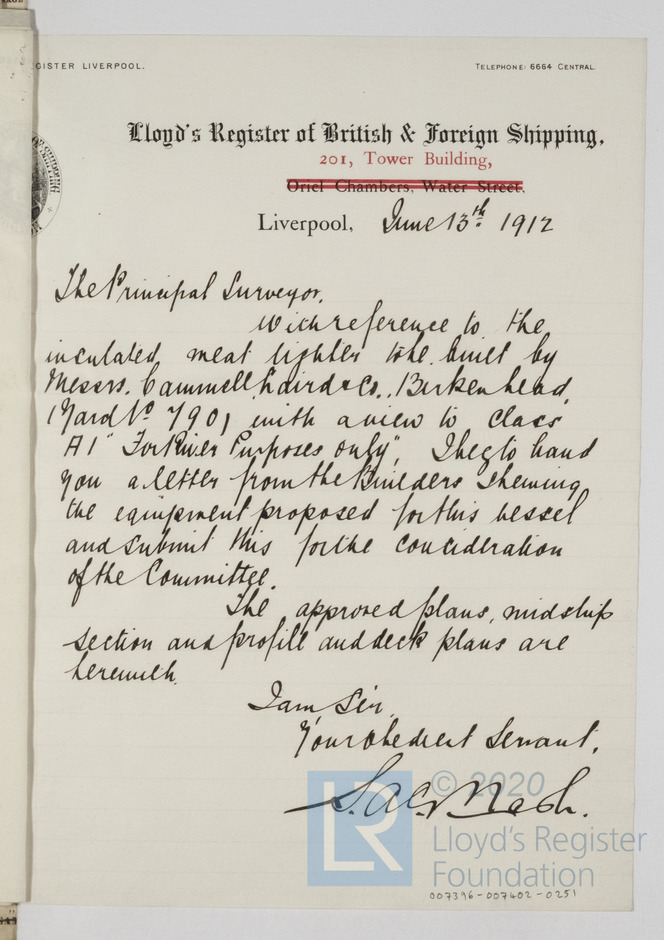 GISTER LIVERPOOL.
TELEPHONE: 6664 CENTRAL.
Lloyd's Register of British & Foreign Shipping,
201, Tower Building,
Oriel Chambers, Water Street,
Liverpool, June 13th 1912
The Principal Surveyor.
With reference to the
insulated meat lighter to be built by
Messrs. Cammell, Laird & Co., Birkenhead,
(Yard No 790) with a view to Class
A1 "For River Purposes only", I beg to hand
you a letter from the Builders shewing
the equipment proposed for this vessel
and submit this for the consideration
of the Committee.
The approved plans, midship
section and profile and deck plans are
herewith.
I am Sir,
Your Obedient Servant,
© 2020
LR
Lloyd's Register
Foundation
007396-007402-0251